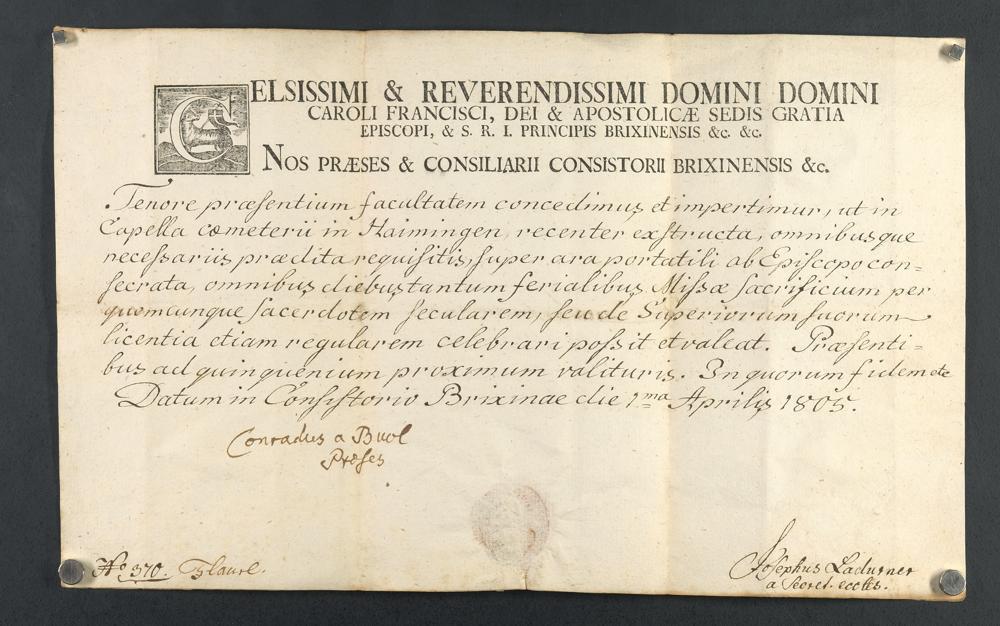 CELSISSIMI & REVERENDISSIMI DOMINI DOMINI
CAROLI FRANCISCI, DEI & APOSTOLICÆ SEDIS GRATIA
EPISCOPI, & S. R. I. PRINCIPIS BRIXINENSIS &c. &c.
NOS PRÆSES & CONSILIARII CONSISTORII BRIXINENSIS &c.
Tenore præsentium facultatem concedimus et impertimur, ut in
Capella cœmeterii in Haimingen recenter exstructa, omnibusque
necessariis prædita requisitis, super ara portatili ab Episcopo con=
secrata, omnibus diebus tantum ferialibus Missæ Sacrificium per
quemcunque sacerdotem secularem, seu de Superiorum suorum
licentia etiam regularem celebrari possit et valeat. Præsenti=
bus ad quinquenium proximum valituris. In quorum fidem etc
Datum in Consistorio Brixinae die 1ma Aprilis 1805.
Conradus a Buol
Præses
No 370. Flaurl.
Josephus Ladurner
a Secret. eccltis.